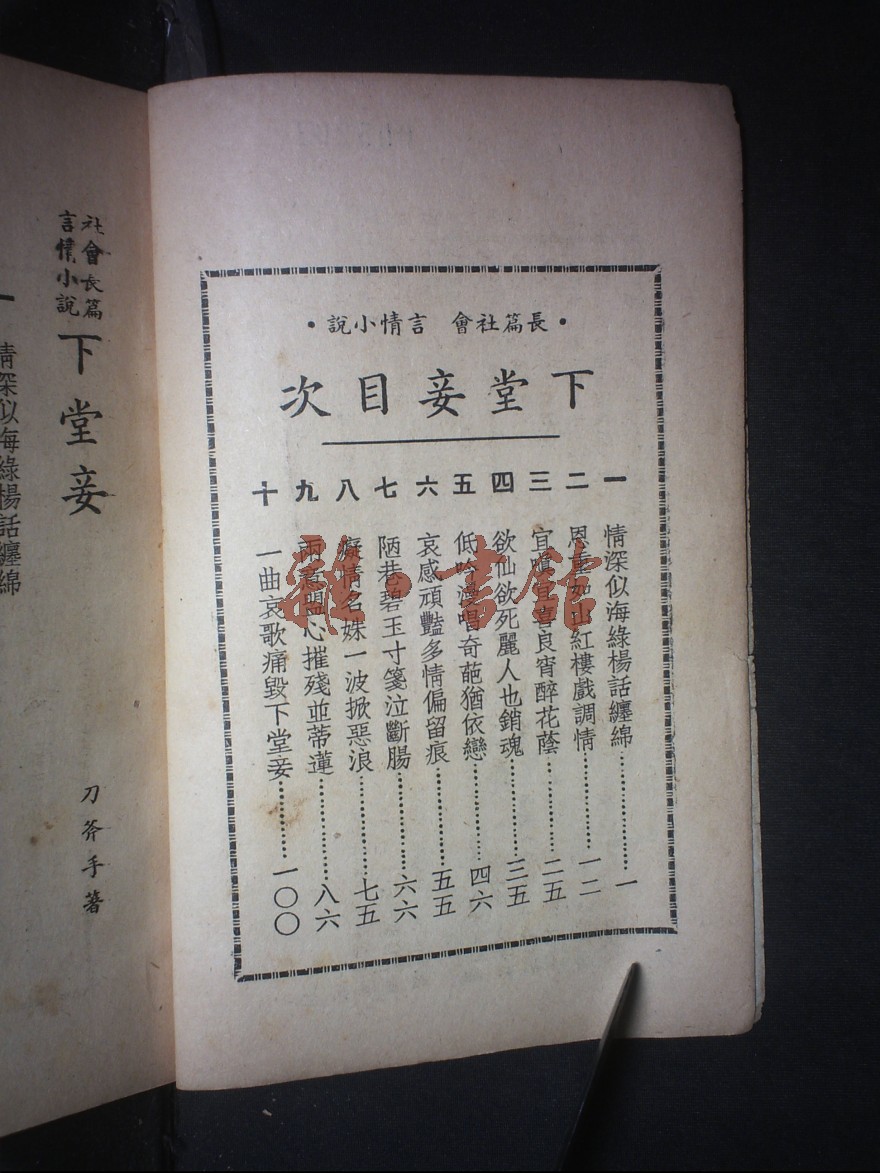 •長篇社會 言情小說•
下堂妾目次
一 情深似海綠楊話纏綿…………………一
二 恩重如山紅樓戲調情…………………一二
三 宜嗔宜喜良宵醉花蔭…………………二五
四 欲仙欲死麗人也銷魂…………………三五
五 低吟漫唱奇葩猶依戀…………………四六
六 哀感頑豔多情偏留痕…………………五五
七 陋巷碧玉寸箋泣斷腸…………………六六
八 癡情名姝一波掀惡浪…………………七五
九 兩意盟心摧殘並蒂蓮…………………八六
十 一曲哀歌痛毀下堂妾…………………一〇〇
社會長篇
言情小說
下堂妾
刀斧手著
一 情深似海綠楊話纏綿
書館